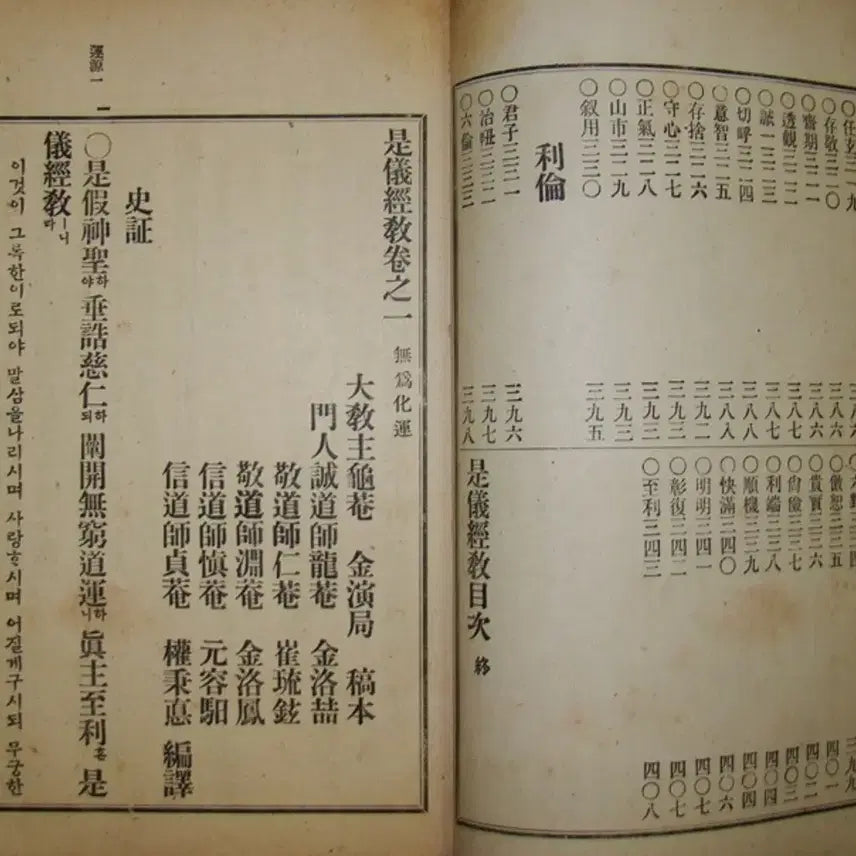 ○任玄三一九
○存敬三二〇 三八六
○齋期三二一 三八六
○透觀三二二 三八七
○誠一三二三 三八七
○切呼三二四 三八八
○意智三二五 三八八
○存捨三二六 三九二
○守心三二七 三九二
○正氣三二八 三九三
○山市三二九 三九三
○叙用三三〇 三九五
利倫
○君子三三一 三九六
○治三三二 三九七
○六倫三三三 三九八
三三四 三九九
○儆恕三三五 四〇一
○貴實三三六 四〇二
○尙儉三三七 四〇三
○利端三三八 四〇四
○順機三三九 四〇四
○快滿三四〇 四〇六
○明明三四一 四〇七
○彰復三四二 四〇七
○至利三四三 四〇八
是儀經敎目次 終
是儀經敎卷之一 無爲化運
大敎主龜菴 金演局 稿本
門人誠道師龍菴 金洛喆
敬道師仁菴 崔琉鉉
敬道師淵菴 金洛鳳
信道師愼菴 元容馹
信道師貞菴 權秉悳 編譯
史証
○是假神聖하야 垂誥慈仁하되 闡開無窮道運하니 眞主至利혼 是
儀經敎ㅣ니라
이것이 그륵한이로되야 말삼을나리시며 사랑하시며 어질게구시되 무궁한
運源一 一